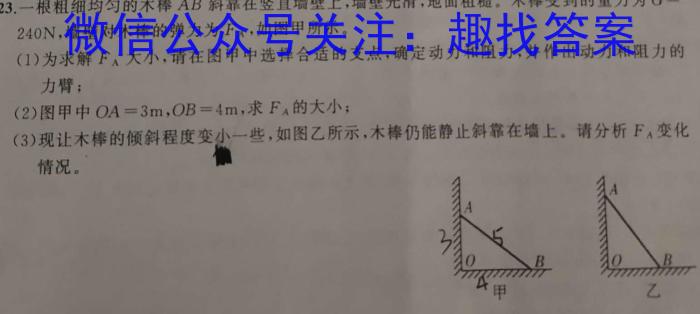 23.一根粗细均匀的木棒 AB 斜靠在竖直墙壁上,墙壁光滑,地面粗糙。木棒受到的重力为 G=
240N,对木棒的弹力为 F,如图甲所示。
微信公众号关注：趣找答案
(1)为求解 F_A 大小,请在图甲中选择合适的支点,确定动力和阻力,并作出动力和阻力的
力臂;
(2)图甲中 OA=3m,OB=4m,求 F_A 的大小;
(3)现让木棒的倾斜程度变小一些,如图乙所示,木棒仍能静止斜靠在墙上。请分析 F_A 变化
情况。
A
3 5
O B
4
甲
A
O B
乙